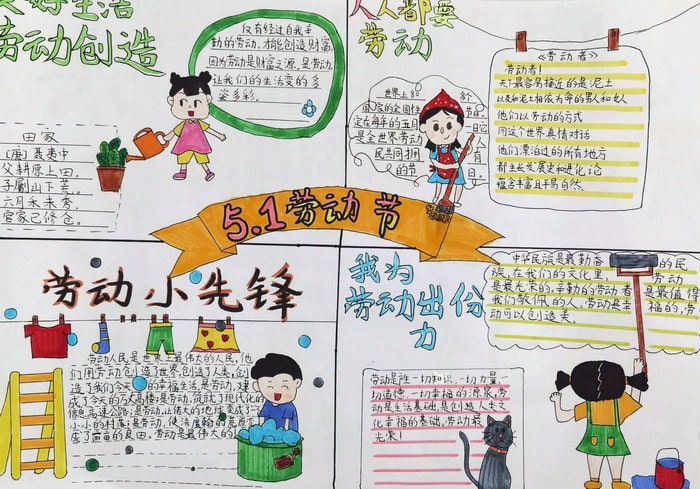 美好生活
劳动创造
仅有经过自我辛
勤的劳动,才能创造财富,
因为劳动是财富之源,是劳动
让我们的生活变的多
姿多彩。
田家
(唐)聂夷中
父耕原上田,
子劚山下荒。
六月禾未秀,
官家已修仓。
人人都要
劳动
世界上80多个
国家的全国性节日。
定在每年的五月一日
是全世界劳动人
民共同拥有
的节日
《劳动者》
劳动者!
天下最容易接近的是泥土
以及和泥土相依为命的男人和女人
他们以劳动的方式
同这个世界真情对话
他们漂泊过的所有地方
都生长发展史和进化论
蕴含丰富且平易自然.
5.1劳动节
劳动小先锋
劳动人民是世界上最伟大的人民,他
们用劳动创造了世界,创造了人类,创
造了我们今天的幸福生活,是劳动,建
成了今天的万丈高楼;是劳动,筑就了现代化的
信息高速公路;是劳动,让偉大的地球变成了一个
小小的村落;是劳动,使浩瀚的荒原变
成了亩亩的良田。劳动是最伟大的!
我为
劳动出份
力
中华民族是最勤奋的民
族,在我们的文化里,劳动
是最光荣的,辛勤的劳动者是最值得
我们敬佩的人,劳动是幸福的,劳
动可以创造美。
劳动是一切知识,一切力量,
一切道德,一切幸福的源泉,劳
动是生活基础,是创造人类文
化幸福的基础,劳动最
光荣!